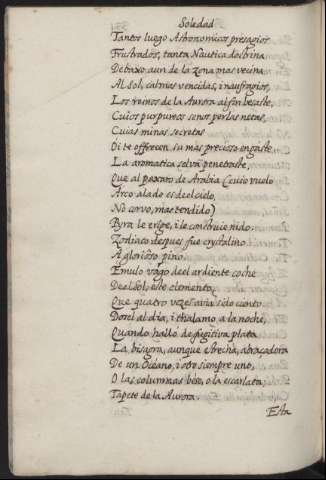 Soledad
Tantos luego Astronomicos presagios
Frustrados, tanta Nautica doctrina
Debaxo aun de la zona mas vecina
Al Sol, calmas vencidas, i naufragios,
Los reinos de la Aurora al fin besaste,
Cuios purpureos senos perlas netas,
Cuias minas secretas
Oi te offrecen su mas precioso engaste.
La aromatica selva penetraste,
Que al paxaro de Arabia (cuio vuelo
Arco alado es de el cielo,
No corvo, mas tendido)
Pyra le erige, i le construie nido.
Zodiaco despues fue crystalino
A glorioso pino,
Emulo vago de el ardiente coche
De el Sol, este elemento,
Que quatro vezes avia sido ciento
Dosel al dia, i thalamo a la noche,
Quando halló de fugitiva plata
La bisagra, aunque estrecha, abraçadora
De un Oceano, i otro siempre uno,
O las columnas bese, o la escarlata,
Tapete de la Aurora.
Esta